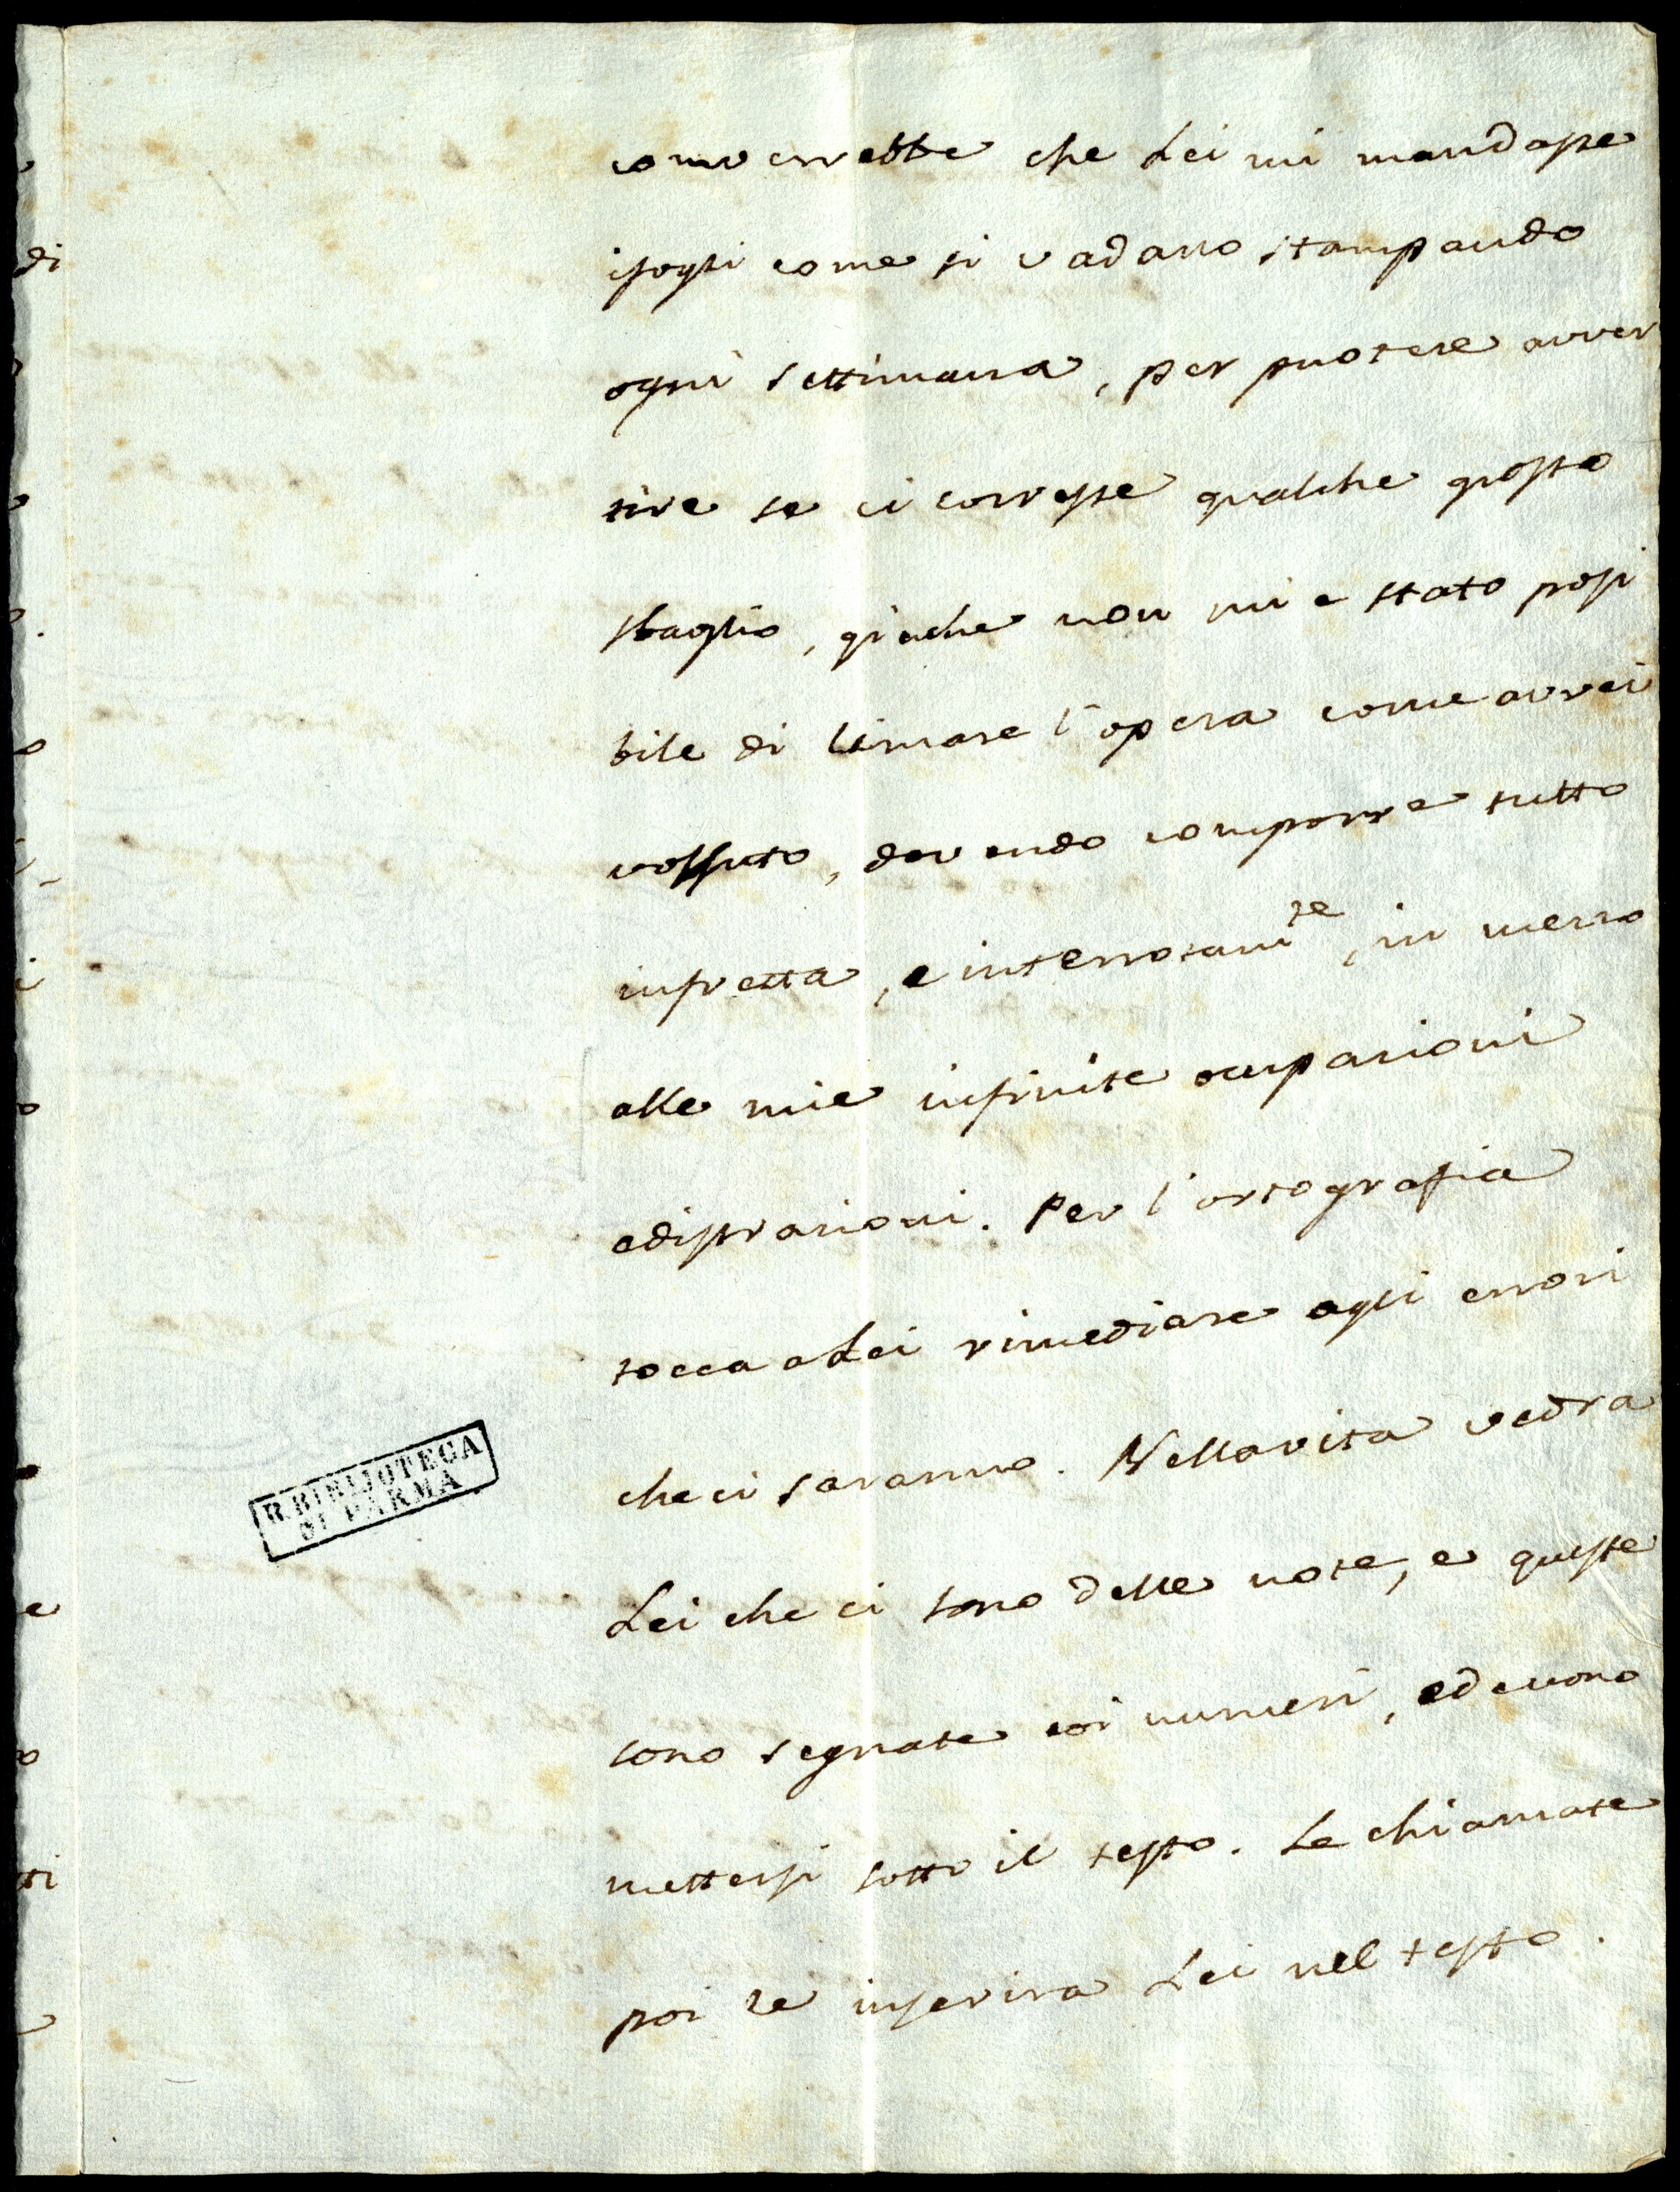 converrebbe che Lei mi mandasse
ifogli come si vadano stampando
ogni settimana, per puotere avver
tire se ci corresse qualche grosso
sbaglio, giache non mi e stato possi
bile di limare l'opera come avrei
volsuto, dovendo comporre tutto
infretta, e interrotam.te, in mezzo
alle mie infinite ocupazioni
edistrazioni. Per l'ortografia
tocca aLei rimediare agli errori
che ci saranno. Nellavita vedra
Lei che ci sono delle note, e queste
sono segnate coi numeri, edevono
mettersi sotto il testo. Le chiamate
poi le inserira Lei nel testo.
R. BIBLIOTECA
DI PARMA